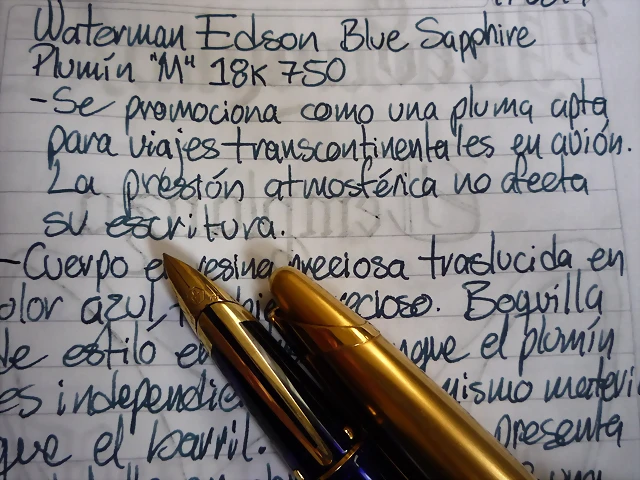 Waterman Edson Blue Sapphire
Plumín "M" 18K 750
-Se promociona como una pluma apta
para viajes transcontinentales en avión.
La presión atmosférica no afecta
su escritura.
-Cuerpo en resina preciosa traslucida en
olor azul, precioso. Boquilla
de estilo el plumín
es independie mismo materi
que el barril. presenta